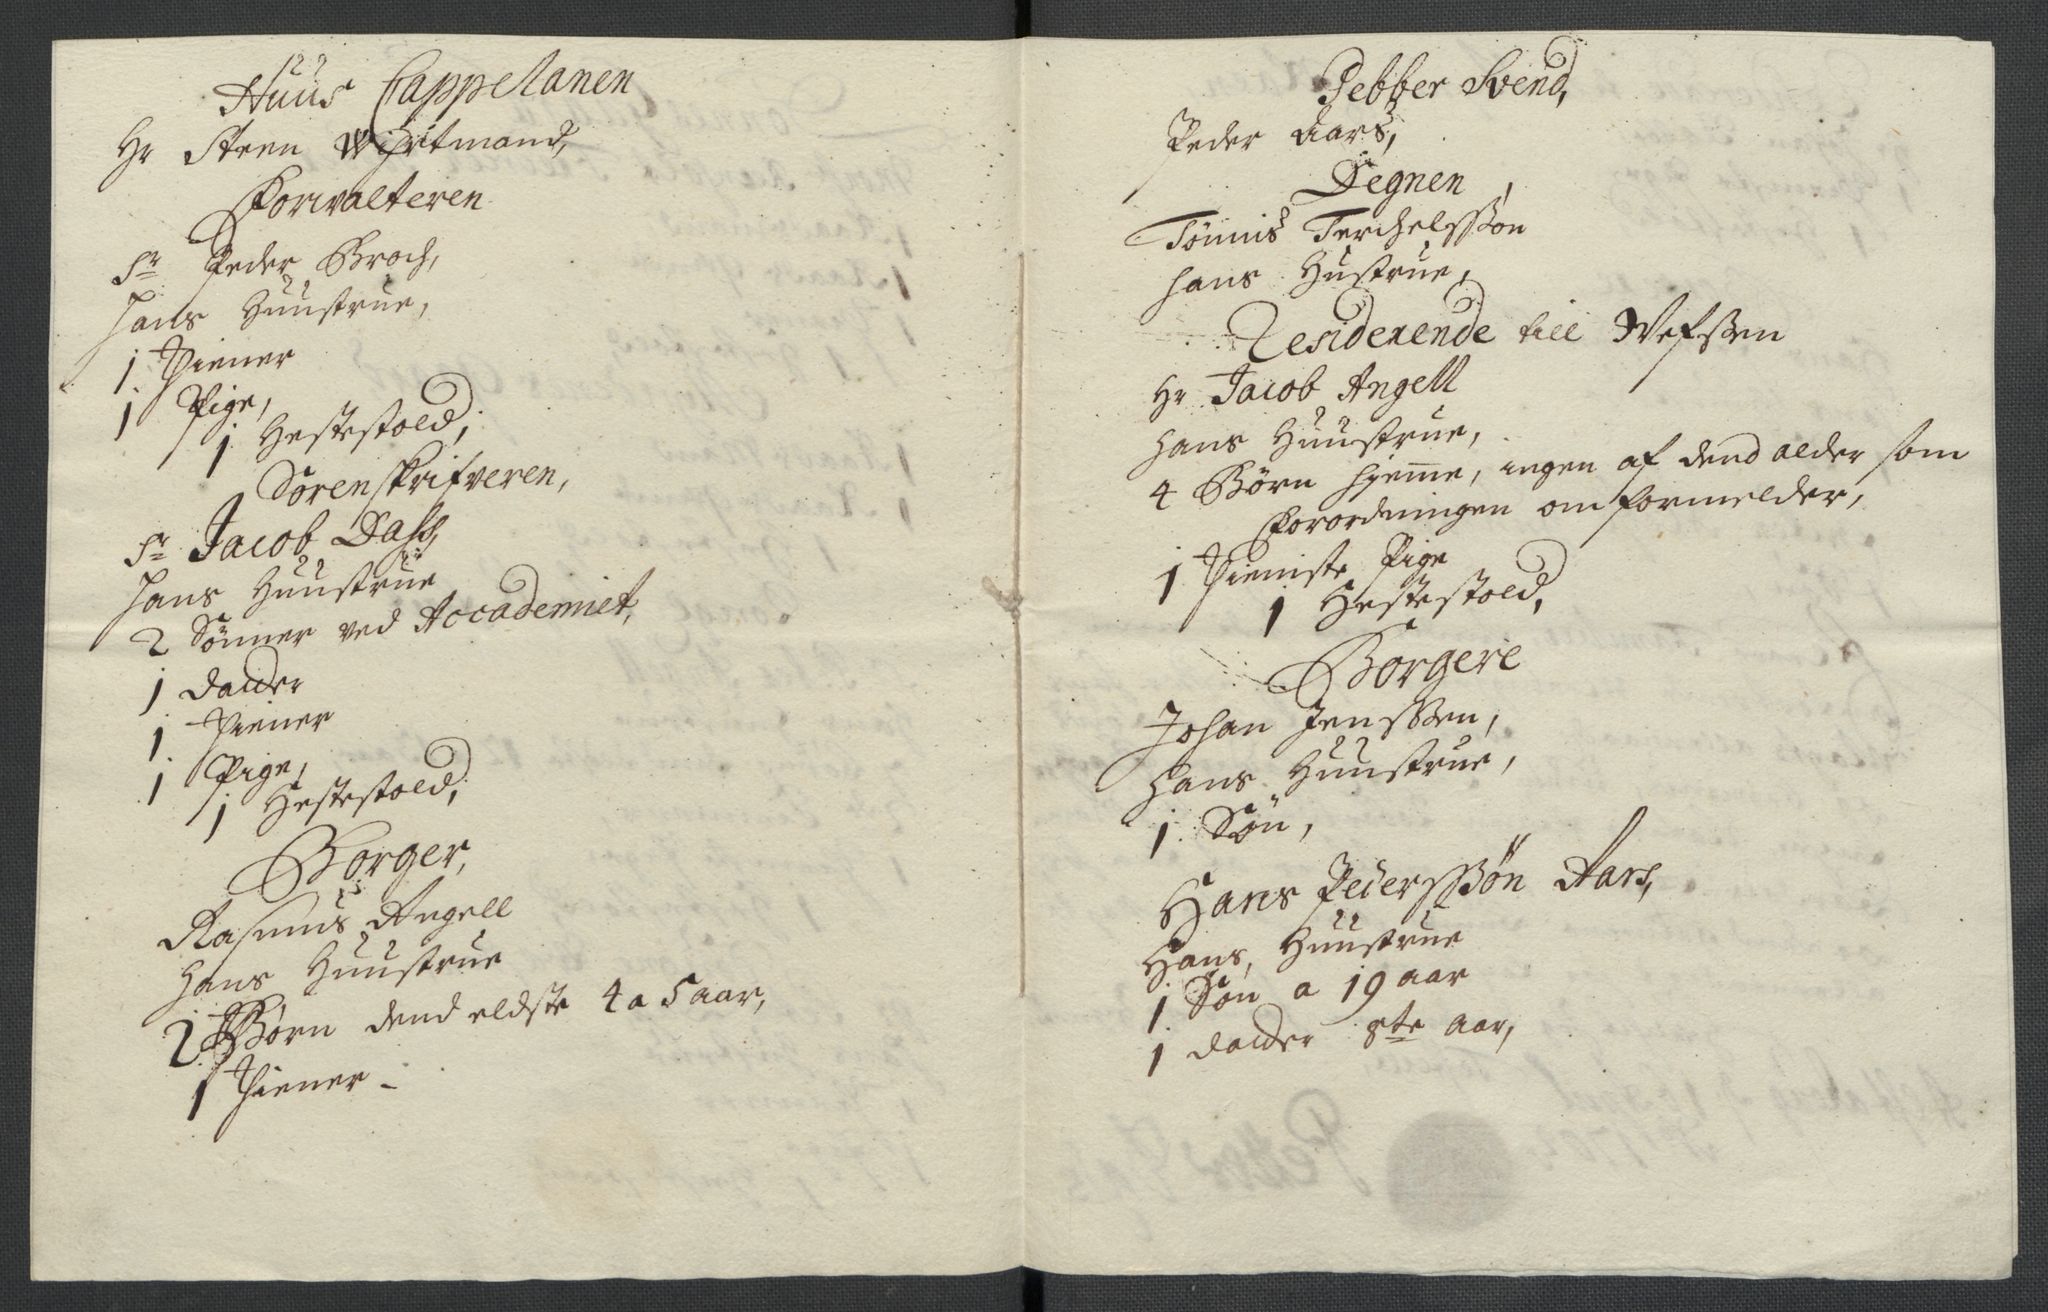 Huus Cappelanen
Hr Steen Wirtmand,
Forvalteren
Sr Peder Broch,
hans Huustrue,
1 Tiener
1 Pige,
1 Hestefold,
Sorenskrifveren,
Sr Jacob Dass,
hans Huustrue
2 Sønner ved Accademiet,
1 datter
1 Tiener
1 Pige,
1 Hestefold,
Borger,
Rasmus Angell
hans Huustrue
2 Børn dend eldste 4 a 5 aar,
1 Tiener -
Pebber Svend,
Peder Aars,
Degnen
Tønnis Terchelssøn
hans Hustrue,
Residerende till Wefssen
Hr Jacob Angell
hans Huustrue,
4 Børn hjeme, ingen af dend alder som
Forordningen omformelder,
1 Tieniste Pige
1 Hestefold,
Borgere
Johan Jenssen,
hans Huustrue,
1 Søn,
Hans Pederssøn Aars,
Hans Huustrue
1 Søn a 19 aar
1 datter 8te aar,